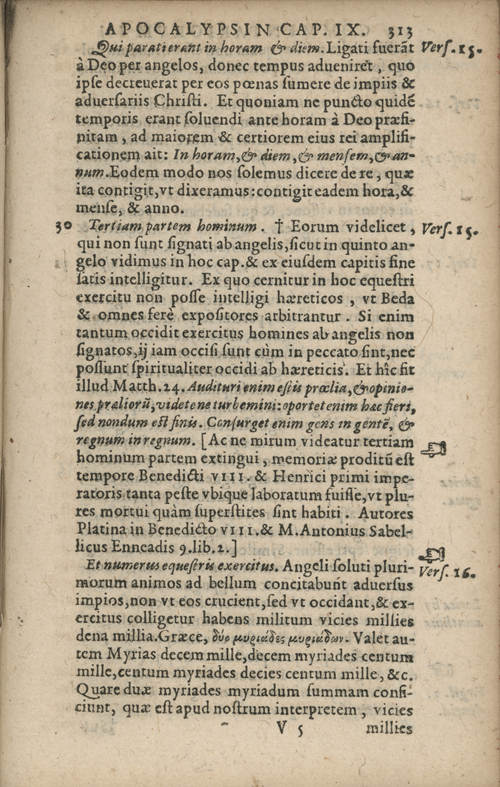 APOCALYPSIN CAP. IX. 313
Qui parati erant in horam & diem. Ligati fuerãt Vers. 15.
à Deo per angelos, donec tempus adueniret, quo
ipse decreuerat per eos pœnas sumere de impiis &
aduersariis Christi. Et quoniam ne puncto quidẽ
temporis erant soluendi ante horam à Deo præfi-
nitam, ad maiorem & certiorem eius rei amplifi-
cationem ait: In horam, & diem, & mensem, & an-
num. Eodem modo nos solemus dicere de re, quæ
ita contigit, vt dixeramus: contigit eadem hora, &
mense, & anno.
30 Tertiam partem hominum. † Eorum videlicet, Vers. 15.
qui non sunt signati ab angelis, sicut in quinto an-
gelo vidimus in hoc cap. & ex eiusdem capitis fine
satis intelligitur. Ex quo cernitur in hoc equestri
exercitu non posse intelligi hæreticos, vt Beda
& omnes ferè expositores arbitrantur. Si enim
tantum occidit exercitus homines ab angelis non
signatos, ij iam occisi sunt cùm in peccato sint, nec
possunt spiritualiter occidi ab hæreticis. Et hîc sit
illud Matth. 24. Audituri enim estis prælia, & opinio-
nes præliorũ, videte ne turbemini: oportet enim hæc fieri,
sed nondum est finis. Consurget enim gens in gentẽ, &
regnum in regnum. [Ac ne mirum videatur tertiam
hominum partem extingui, memoriæ proditũ est
tempore Benedicti VIII. & Henrici primi impe-
ratoris tanta peste vbique laboratum fuisse, vt plu-
res mortui quàm superstites sint habiti. Autores
Platina in Benedicto VIII. & M. Antonius Sabel-
licus Enneadis 9. lib. 2.]
Et numerus equestris exercitus. Angeli soluti pluri- Vers. 16.
morum animos ad bellum concitabunt aduersus
impios, non vt eos crucient, sed vt occidant, & ex-
ercitus colligetur habens militum vicies millies
dena millia. Græce, δύο μυριάδες μυριάδων. Valet au-
tem Myrias decem mille, decem myriades centum
mille, centum myriades decies centum mille, &c.
Quare duæ myriades myriadum summam confi-
ciunt, quæ est apud nostrum interpretem, vicies
V 5 millies